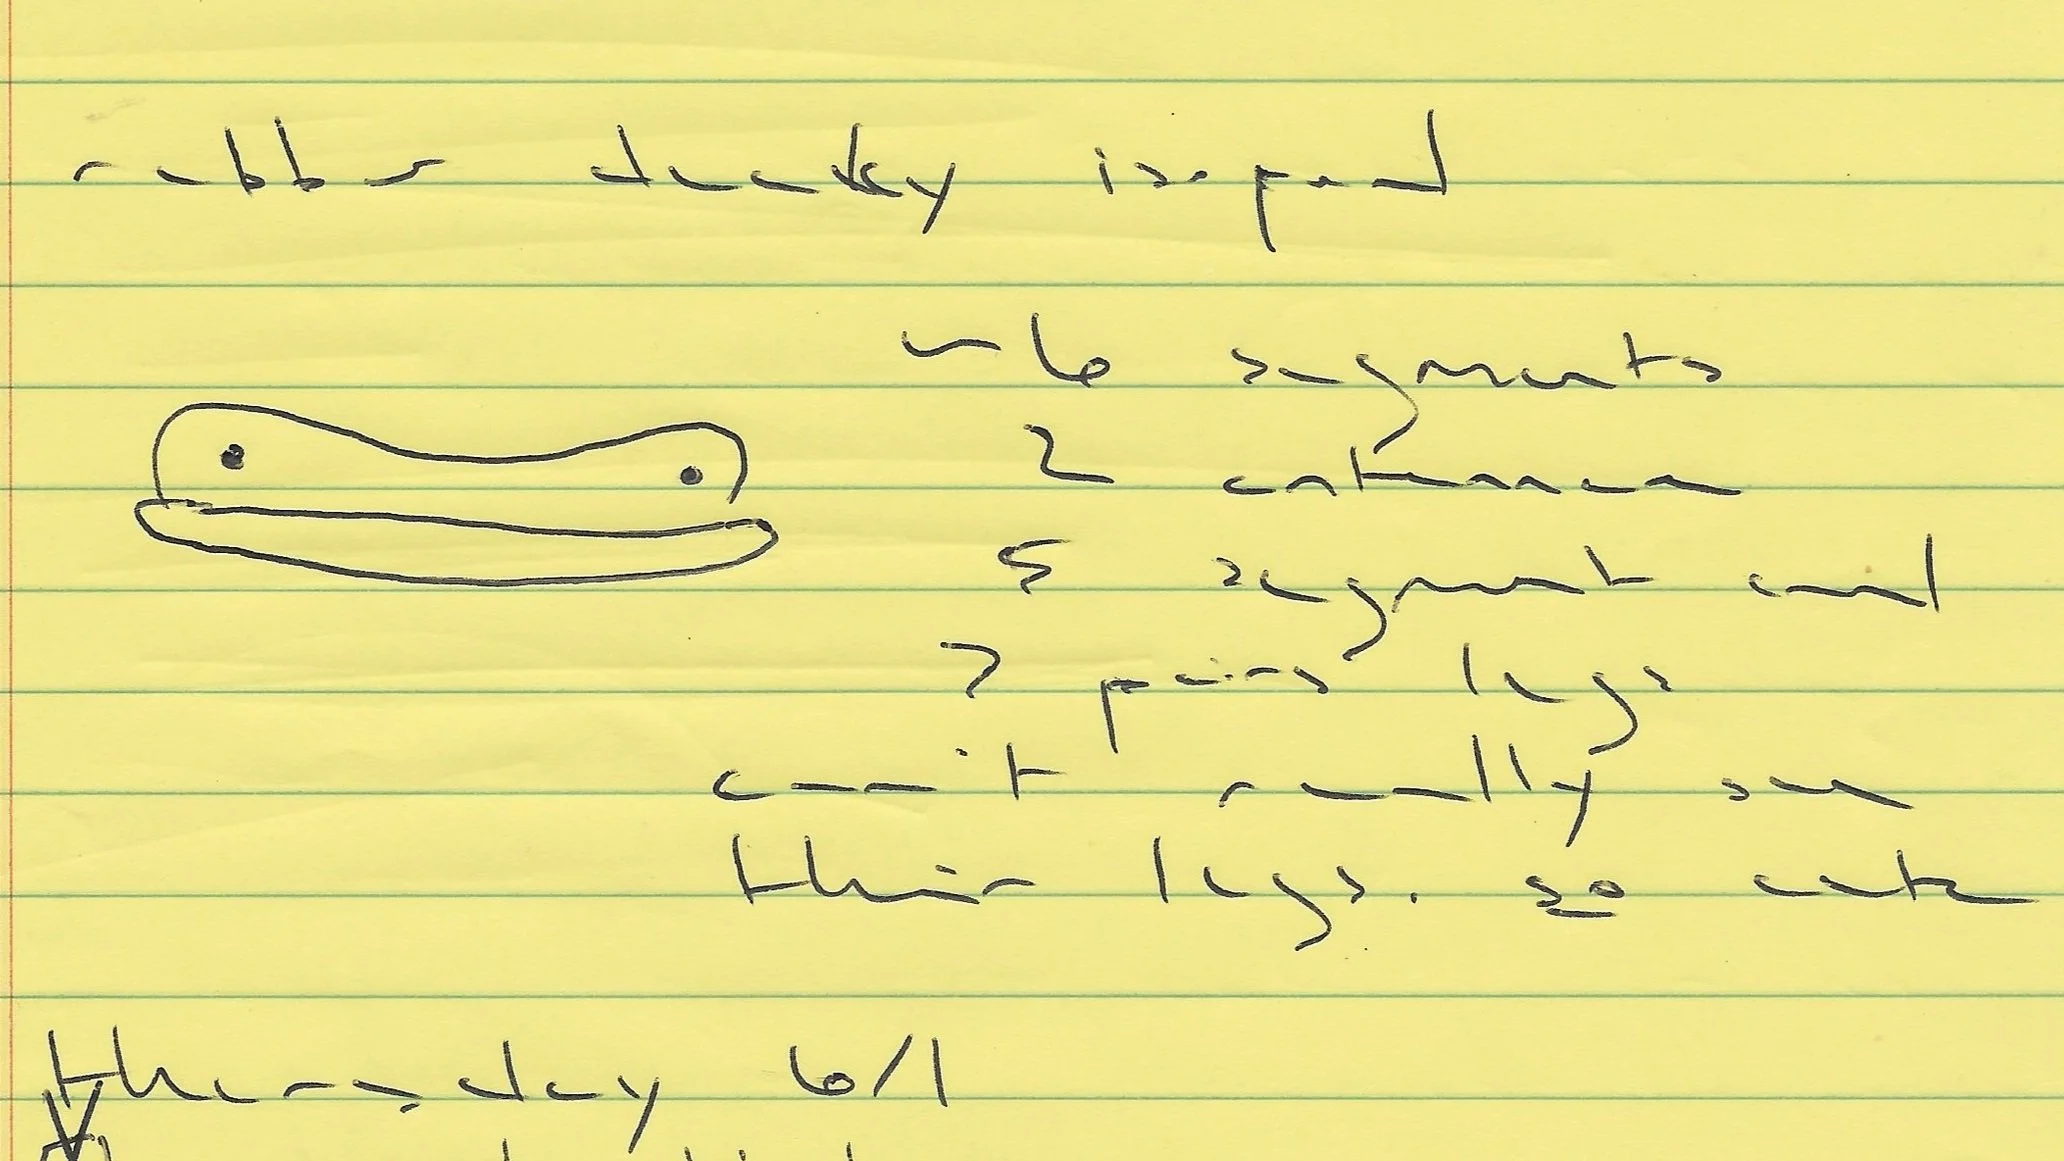 rubber ducky isopod
~6 segments
2 antennae
5 segment and
7 pairs legs
can't really see
their legs. so cute
thursday 6/1